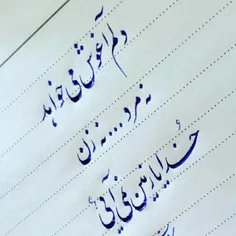 دلم آغوش می خواهد
نه مرد... نه زن
خدایا زمین نمی آیی